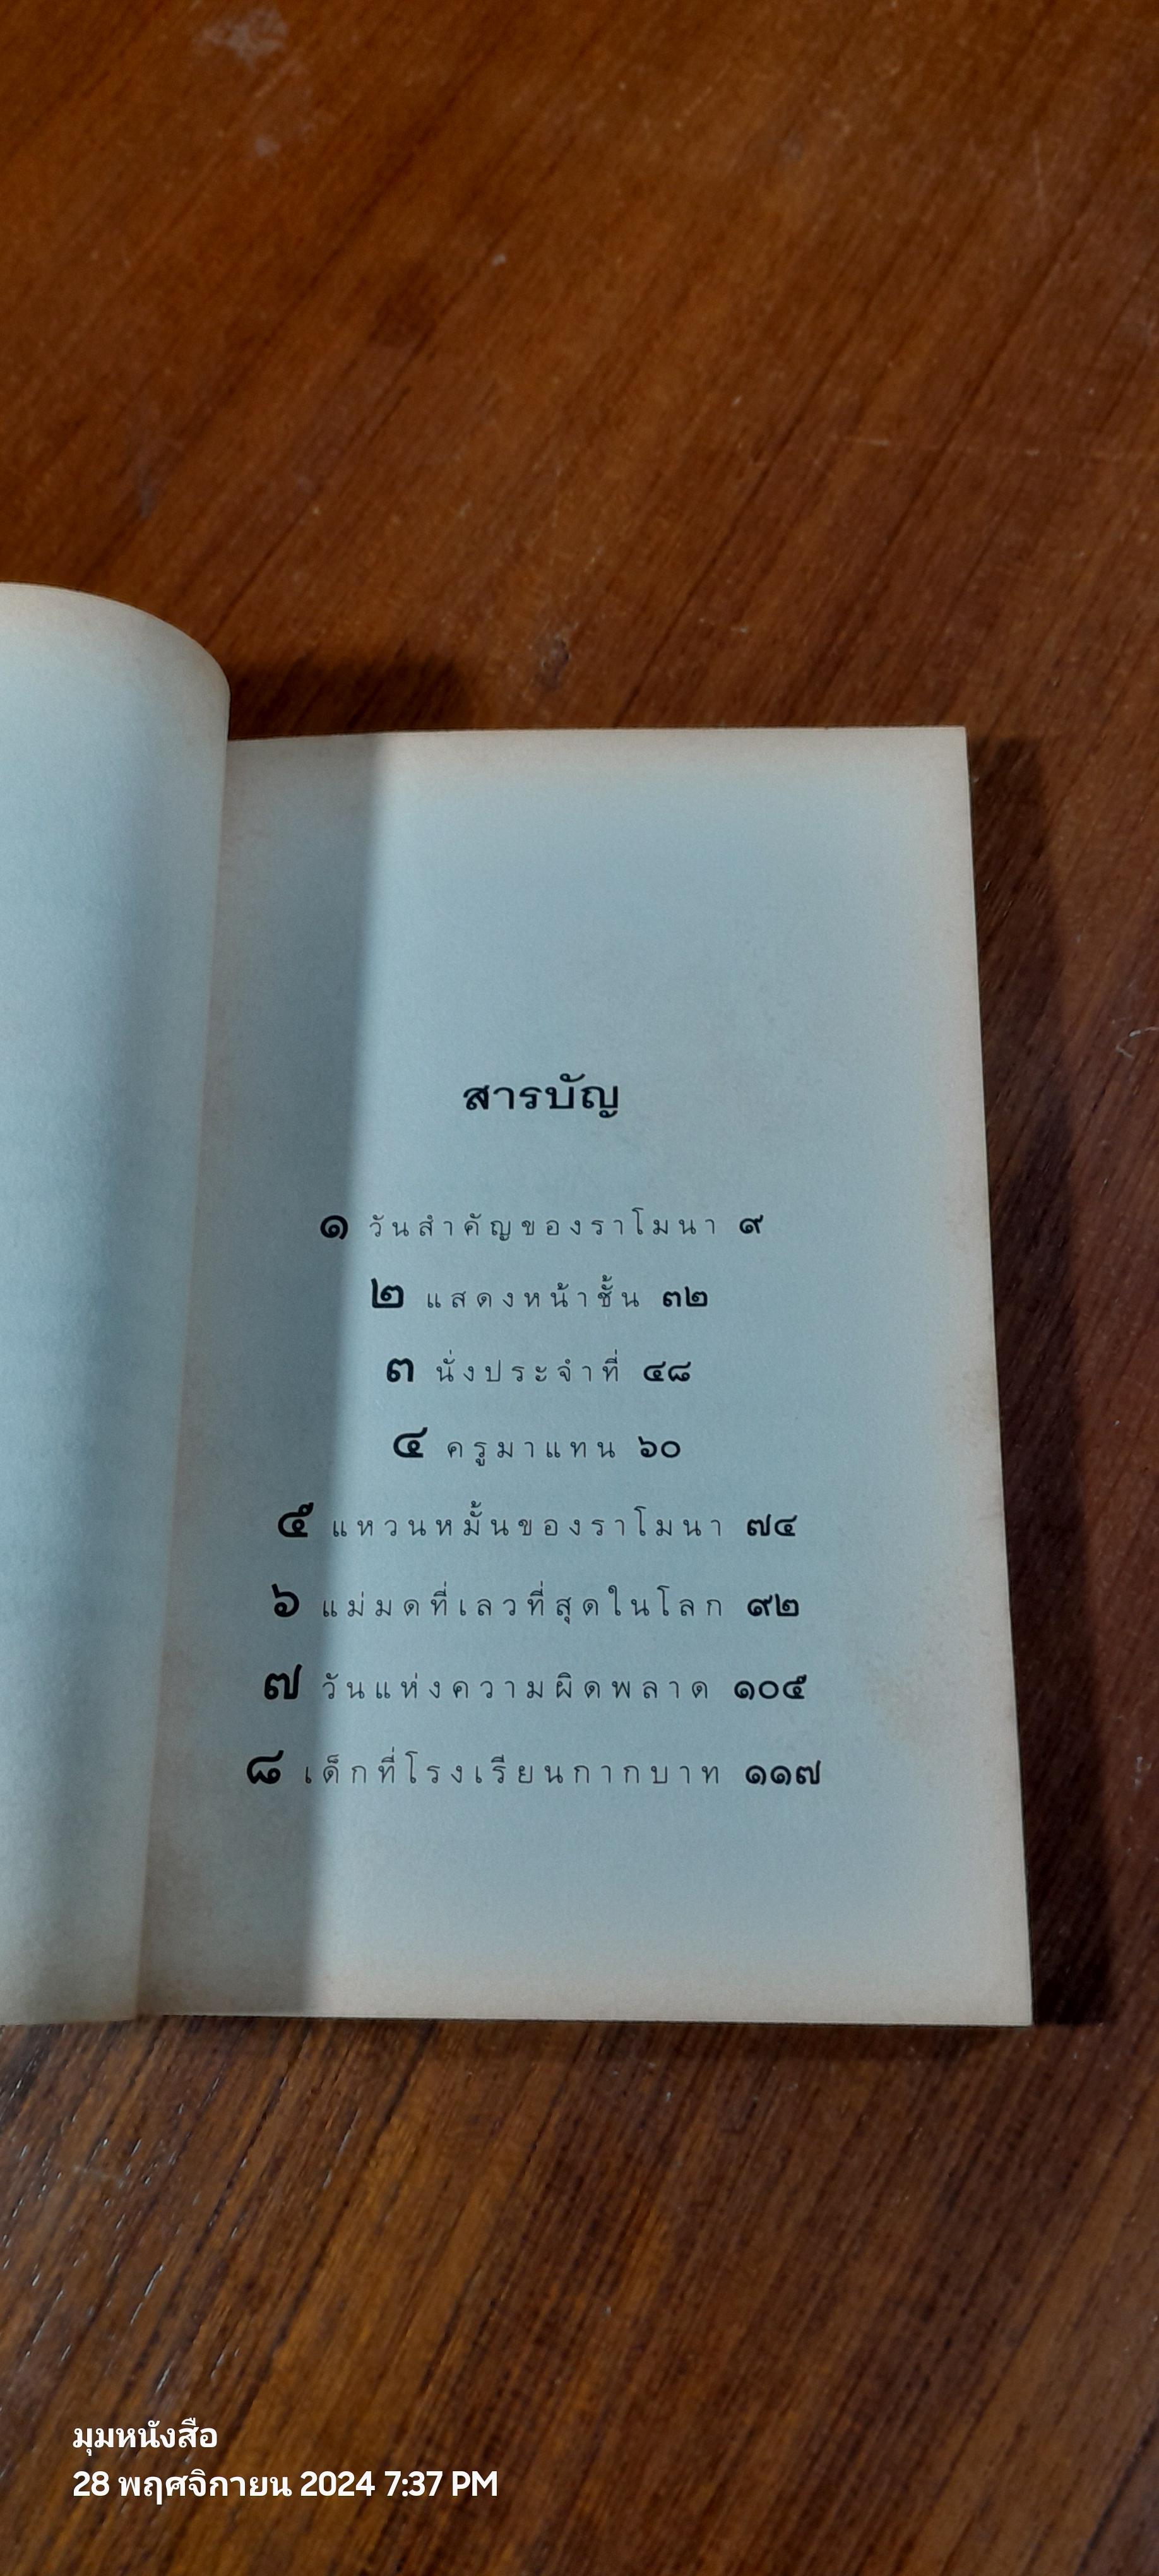 สารบัญ
๑ วันสำคัญของราโมนา ๙
๒ แสดงหน้าชั้น ๓๒
๓ นั่งประจำที่ ๔๘
๔ ครูมาแทน ๖๐
๕ แหวนหมั้นของราโมนา ๗๔
๖ แม่มดที่เลวที่สุดในโลก ๙๒
๗ วันแห่งความผิดพลาด ๑๐๕
๘ เด็กที่โรงเรียนกากบาท ๑๑๗
มุมหนังสือ
28 พฤศจิกายน 2024 7:37 PM